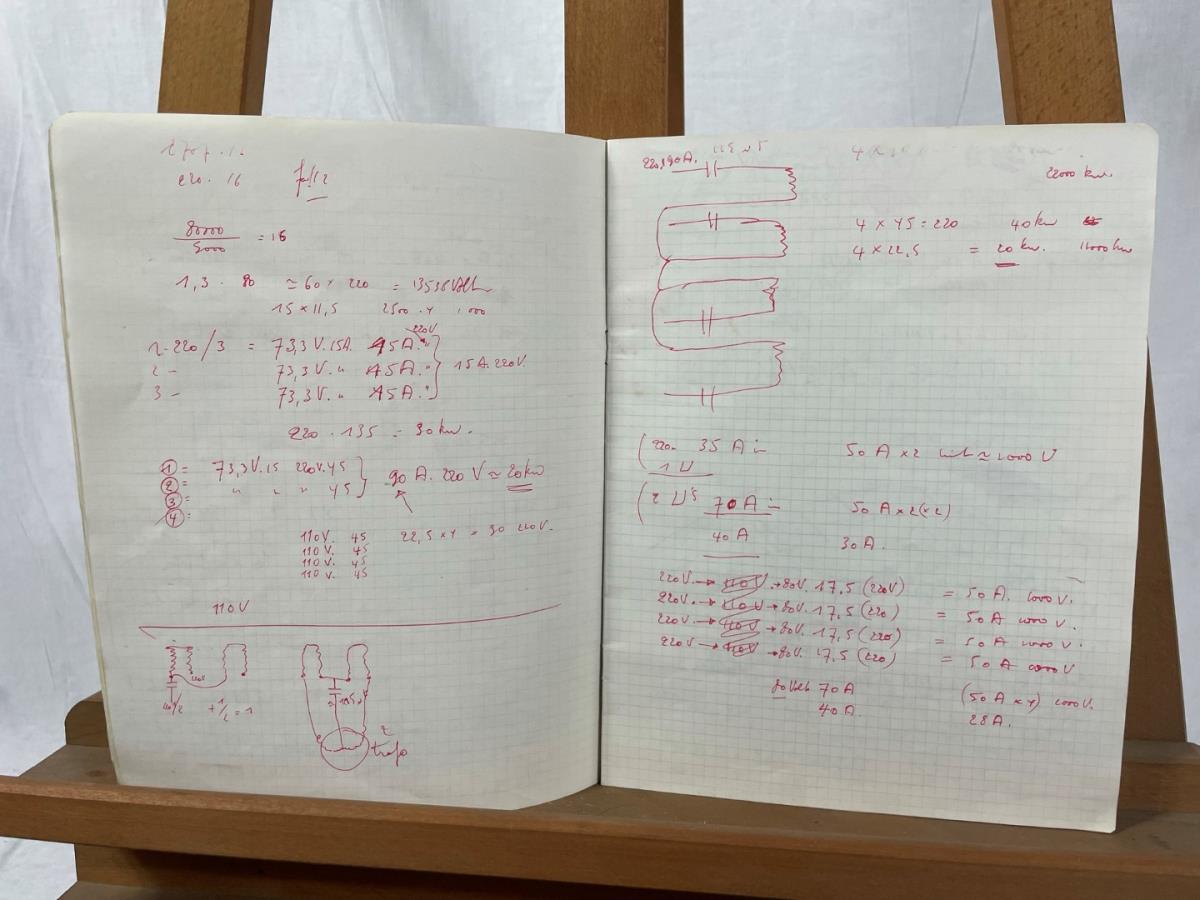 220. 16
80000
5000
= 16
1,3 . 80 ≃ 60 × 220 =
15 × 11,5 2500 . 4 1000
1- 220/3 = 73,3 V. 15A. 45A. 220V
2 - 73,3 V. " 45A. "
3 - 73,3 V. " 45A. "
15 A. 220V.
220 . 135 = 30 kw.
① = 73,3 V. 15 220V. 45
② = " " " 45
③ =
④ =
90 A. 220 V ≃ 20 kw
110 V. 45 22,5 × 4 = 90 220V.
110 V. 45
110 V. 45
110 V. 45
110 V
+ 1/2 = 1
2
trafo
220, 90A.
22000 kw.
4 × 45 = 220 40 kw
4 × 22,5 = 20 kw. 11000 kw
220 - 35 A in 50 A × 2 ≃ 1000 V
1 U
2 U's 70 A in 50 A × 2 (× 2)
40 A 30 A.
220V. → 110V → 80V. 17,5 (220V) = 50 A. 1000 V.
220V. → 110V → 80V. 17,5 (220) = 50 A 1000 V.
220V. → 110V → 80V. 17,5 (220) = 50 A 1000 V.
220V → 110V → 80V. 17,5 (220) = 50 A 1000 V
70 A (50 A × 4) 1000 V.
40 A. 28 A.